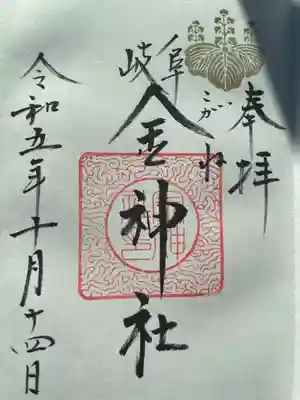 奉拝
こがね
岐阜
金神社
令和五年十月十四日